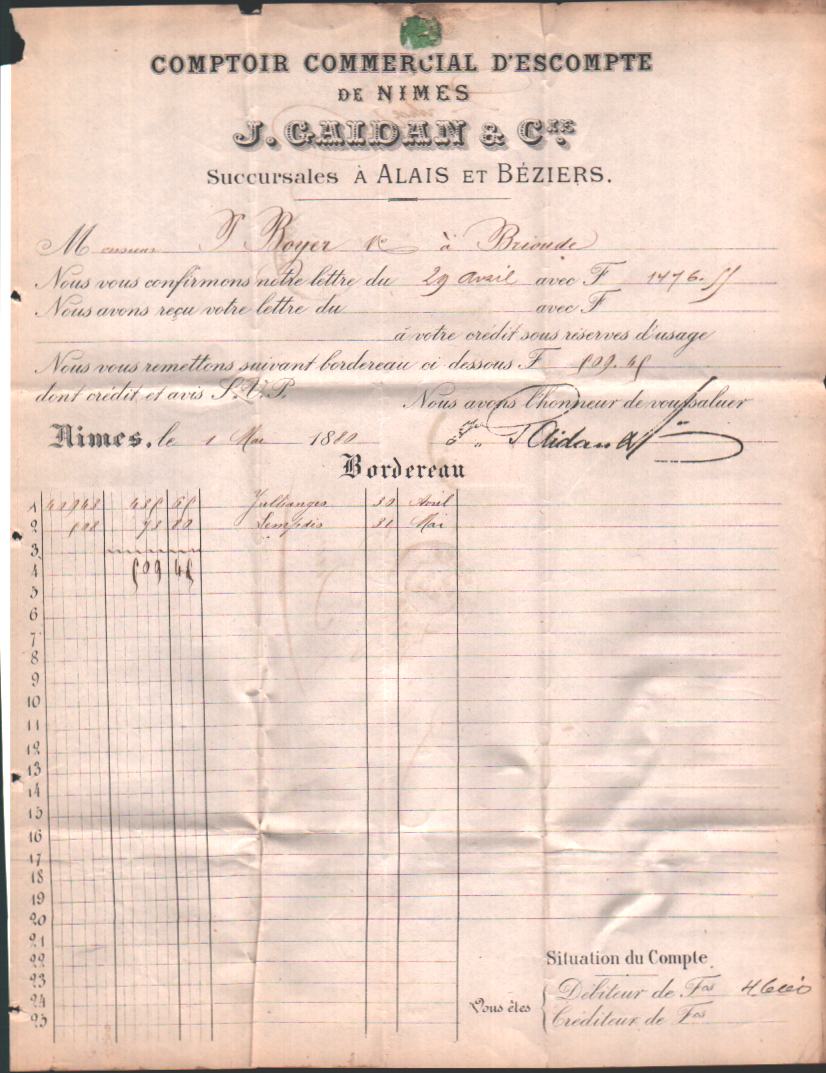 COMPTOIR COMMERCIAL D'ESCOMPTE
DE NIMES
J. GAIDAN & CIE
Succursales À ALAIS ET BÉZIERS.
Monsieur Royer à Brioude
Nous vous confirmons notre lettre du 29 avril avec F 1476.55
Nous avons reçu votre lettre du avec F
à votre crédit sous réserves d'usage
Nous vous remettons suivant bordereau ci dessous F 509.45
dont crédit et avis S.V.P.
Nous avons l'honneur de vous saluer
Nimes, le 1 Mai 1880
J. Gaidan
Bordereau
1 435 65 Jullianges 30 Avril
2 73 80 Lempdes 31 Mai
3
4 509 45
5
6
7
8
9
10
11
12
13
14
15
16
17
18
19
20
21
22
23
24
25
Situation du Compte
Vous êtes
Débiteur de Fcs
Créditeur de Fcs